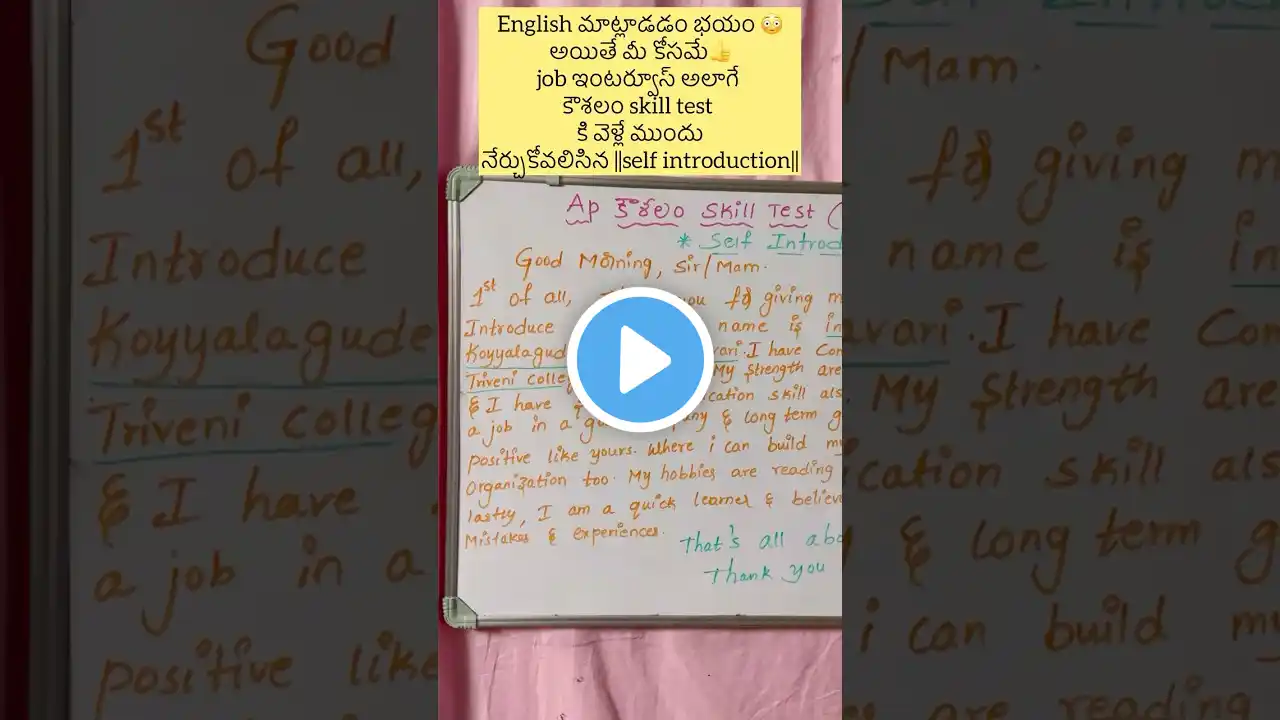 English మాట్లాడడం భయం 😳
అయితే మీ కోసమే👍
job ఇంటర్వ్యూస్ అలాగే
కౌశలం skill test
కి వెళ్లే ముందు
నేర్చుకోవలిసిన ||self introduction||
Ap కౌశలం Skill Test (
* Self Introd
Good Morning, Sir/Mam.
1st of all, you for giving m
Introduce name is in
Koyyalagud vari. I have Con
Triveni colleg My Strength are
& I have cation skill als
a job in a g ny & long term g
positive like yours. Where i can build my
Organization too. My hobbies are reading
lastly, I am a quick learner & believe
Mistakes & experiences.
That's all abo
Thank you